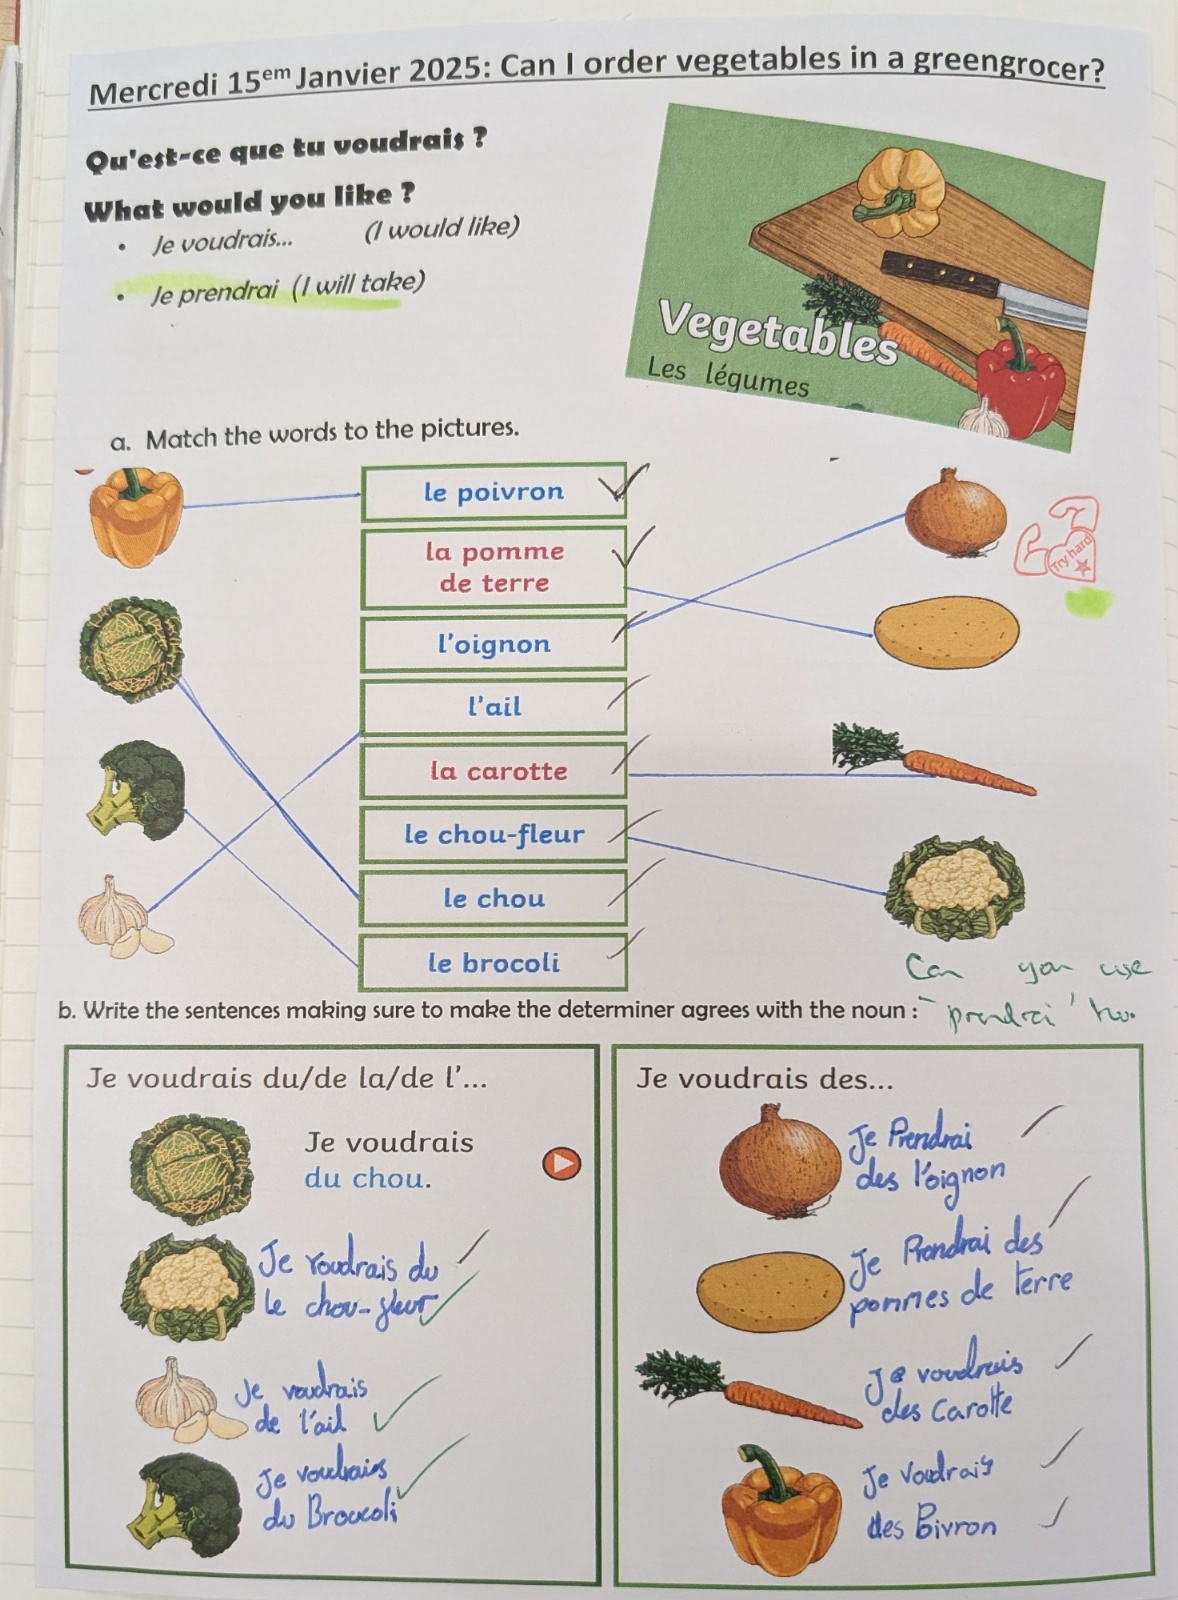 Mercredi 15em Janvier 2025: Can I order vegetables in a greengrocer?
Qu'est-ce que tu voudrais ?
What would you like ?
• Je voudrais... (I would like)
• Je prendrai (I will take)
Vegetables
Les légumes
a. Match the words to the pictures.
le poivron
la pomme
de terre
l'oignon
l'ail
la carotte
le chou-fleur
le chou
le brocoli
Try hard
Can you use
'prendrai' too.
b. Write the sentences making sure to make the determiner agrees with the noun :
Je voudrais du/de la/de l'...
Je voudrais
du chou.
Je voudrais du
le chou-fleur
Je voudrais
de l'ail
Je voudrais
du Broucoli
Je voudrais des...
Je Prendrai
des l'oignon
Je Prendrai des
pommes de terre
Je voudrais
des Carotte
Je Voudrais
des Poivron